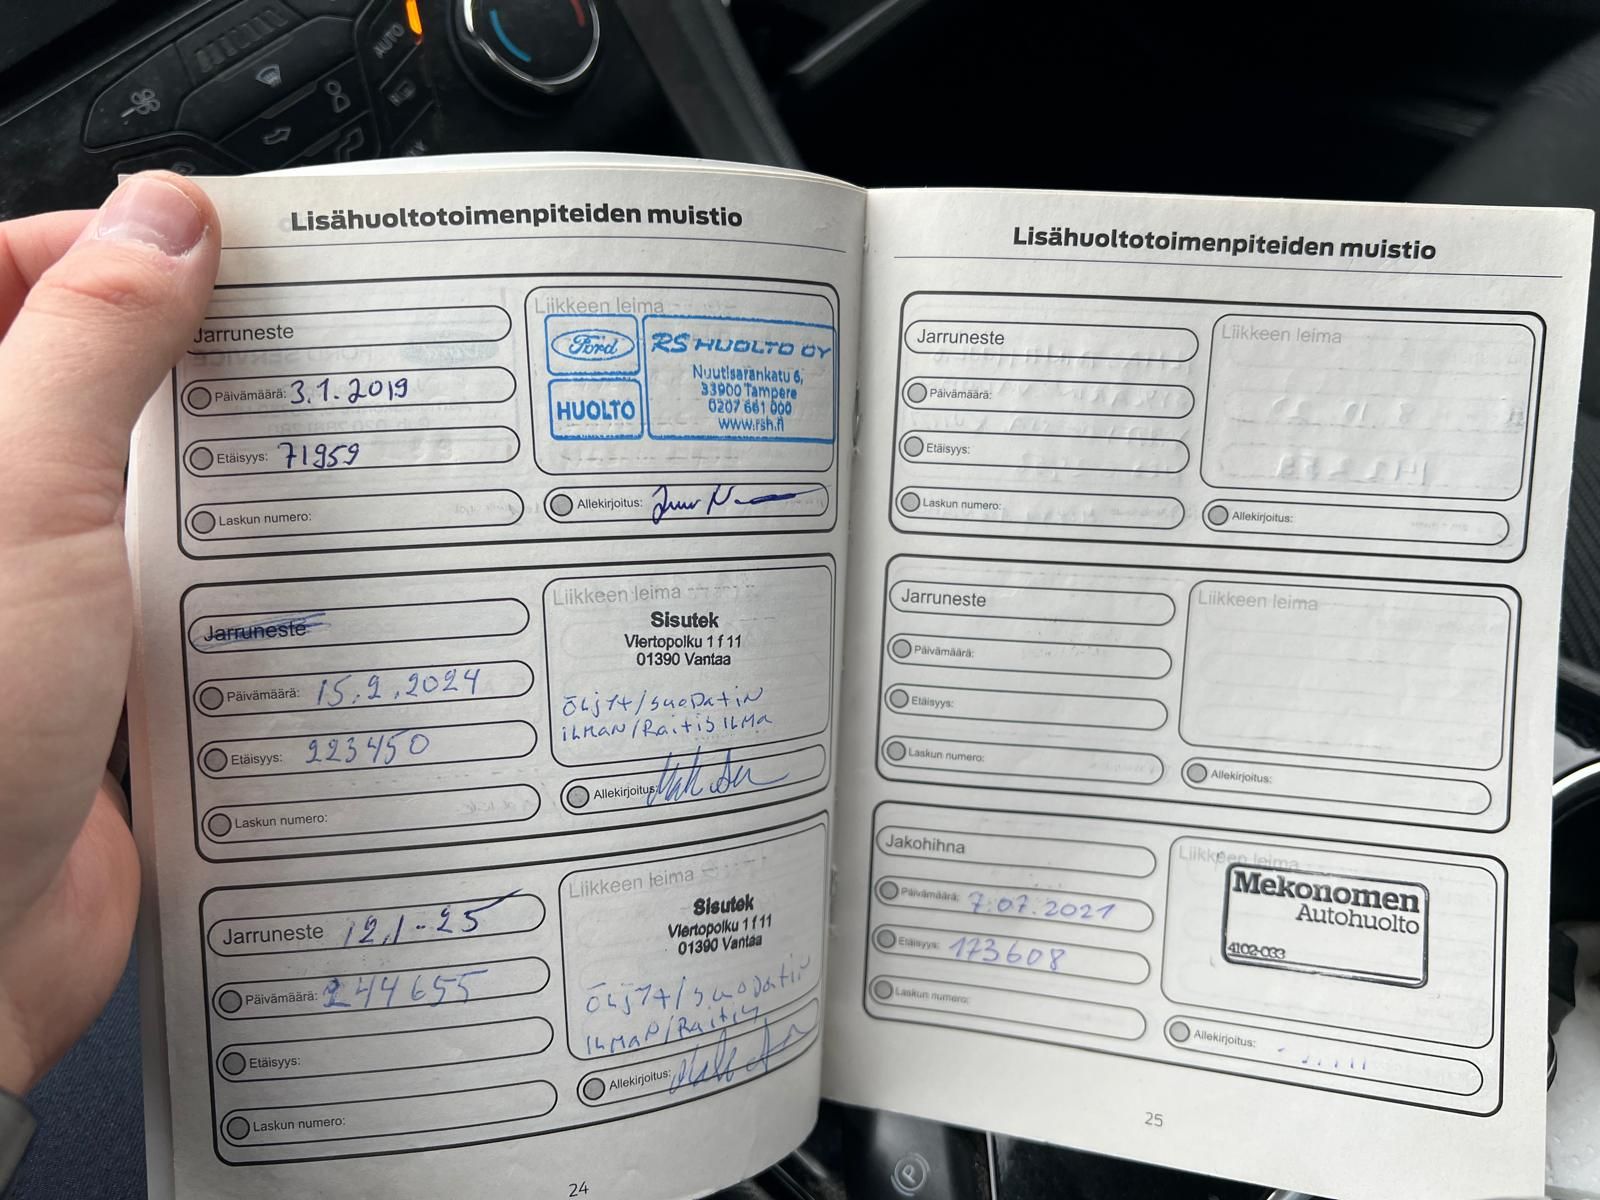 AUTO
Lisähuoltotoimenpiteiden muistio
Jarruneste
Päivämäärä: 3.1.2019
Etäisyys: 71959
Laskun numero:
Liikkeen leima
Ford
HUOLTO
RS HUOLTO OY
Nuutisarankatu 6,
33900 Tampere
0207 661 000
www.rsh.fi
Allekirjoitus:
Jarruneste
Päivämäärä: 15.2.2024
Etäisyys: 223450
Laskun numero:
Liikkeen leima
Sisutek
Viertopolku 1 f 11
01390 Vantaa
Öljyt/suodatin
ilman/Raitis ilma
Allekirjoitus:
Jarruneste 12.1-25
Päivämäärä: 244655
Etäisyys:
Laskun numero:
Liikkeen leima
Sisutek
Viertopolku 1 f 11
01390 Vantaa
Öljyt/suodatin
ilman/Raitis
Allekirjoitus:
24
Lisähuoltotoimenpiteiden muistio
Jarruneste
Päivämäärä:
Etäisyys:
Laskun numero:
Liikkeen leima
Allekirjoitus:
Jarruneste
Päivämäärä:
Etäisyys:
Laskun numero:
Liikkeen leima
Allekirjoitus:
Jakohihna
Päivämäärä: 7.07.2021
Etäisyys: 173608
Laskun numero:
Liikkeen leima
Mekonomen
Autohuolto
4102-033
Allekirjoitus:
25
P